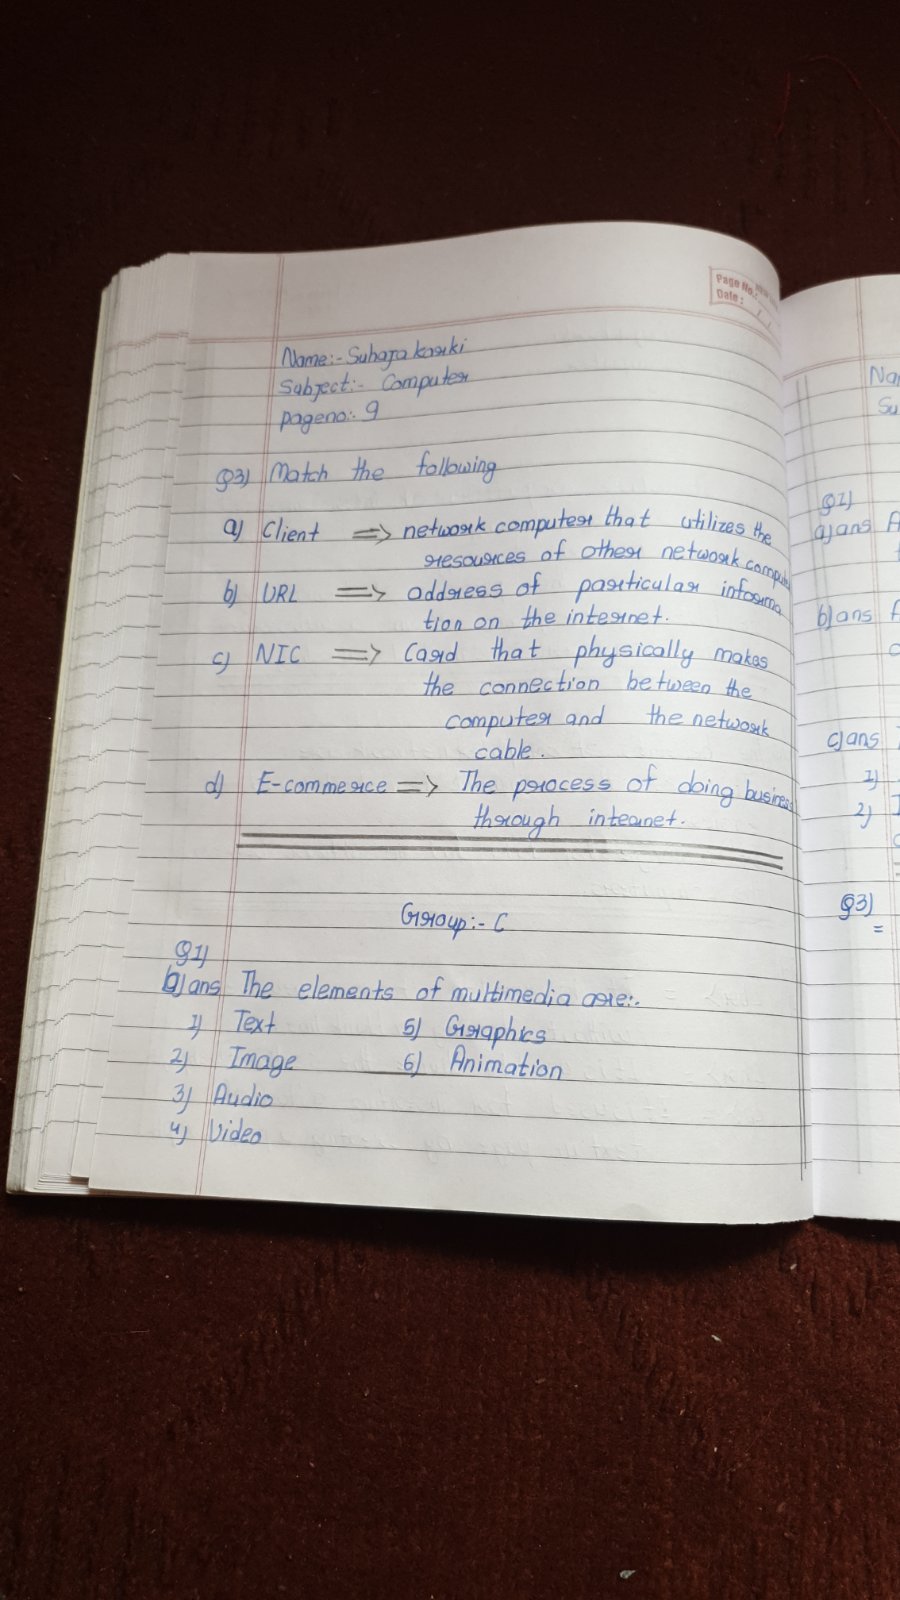 Page No.:
Date:
Name:- Suhaja karki
Subject:- Computer
pageno:- 9
Q3) Match the following
a) Client => network computer that utilizes the
resources of other network compute
b) URL => address of particular informa
tion on the internet.
c) NIC => Card that physically makes
the connection between the
computer and the network
cable.
d) E-commerce => The process of doing business
through internet.
Group:- C
Q1)
b) ans The elements of multimedia are:.
1) Text 5) Graphics
2) Image 6) Animation
3) Audio
4) Video
Na
Su
Q1)
a) ans A
b) ans A
c) ans
1)
2) I
Q3)
=